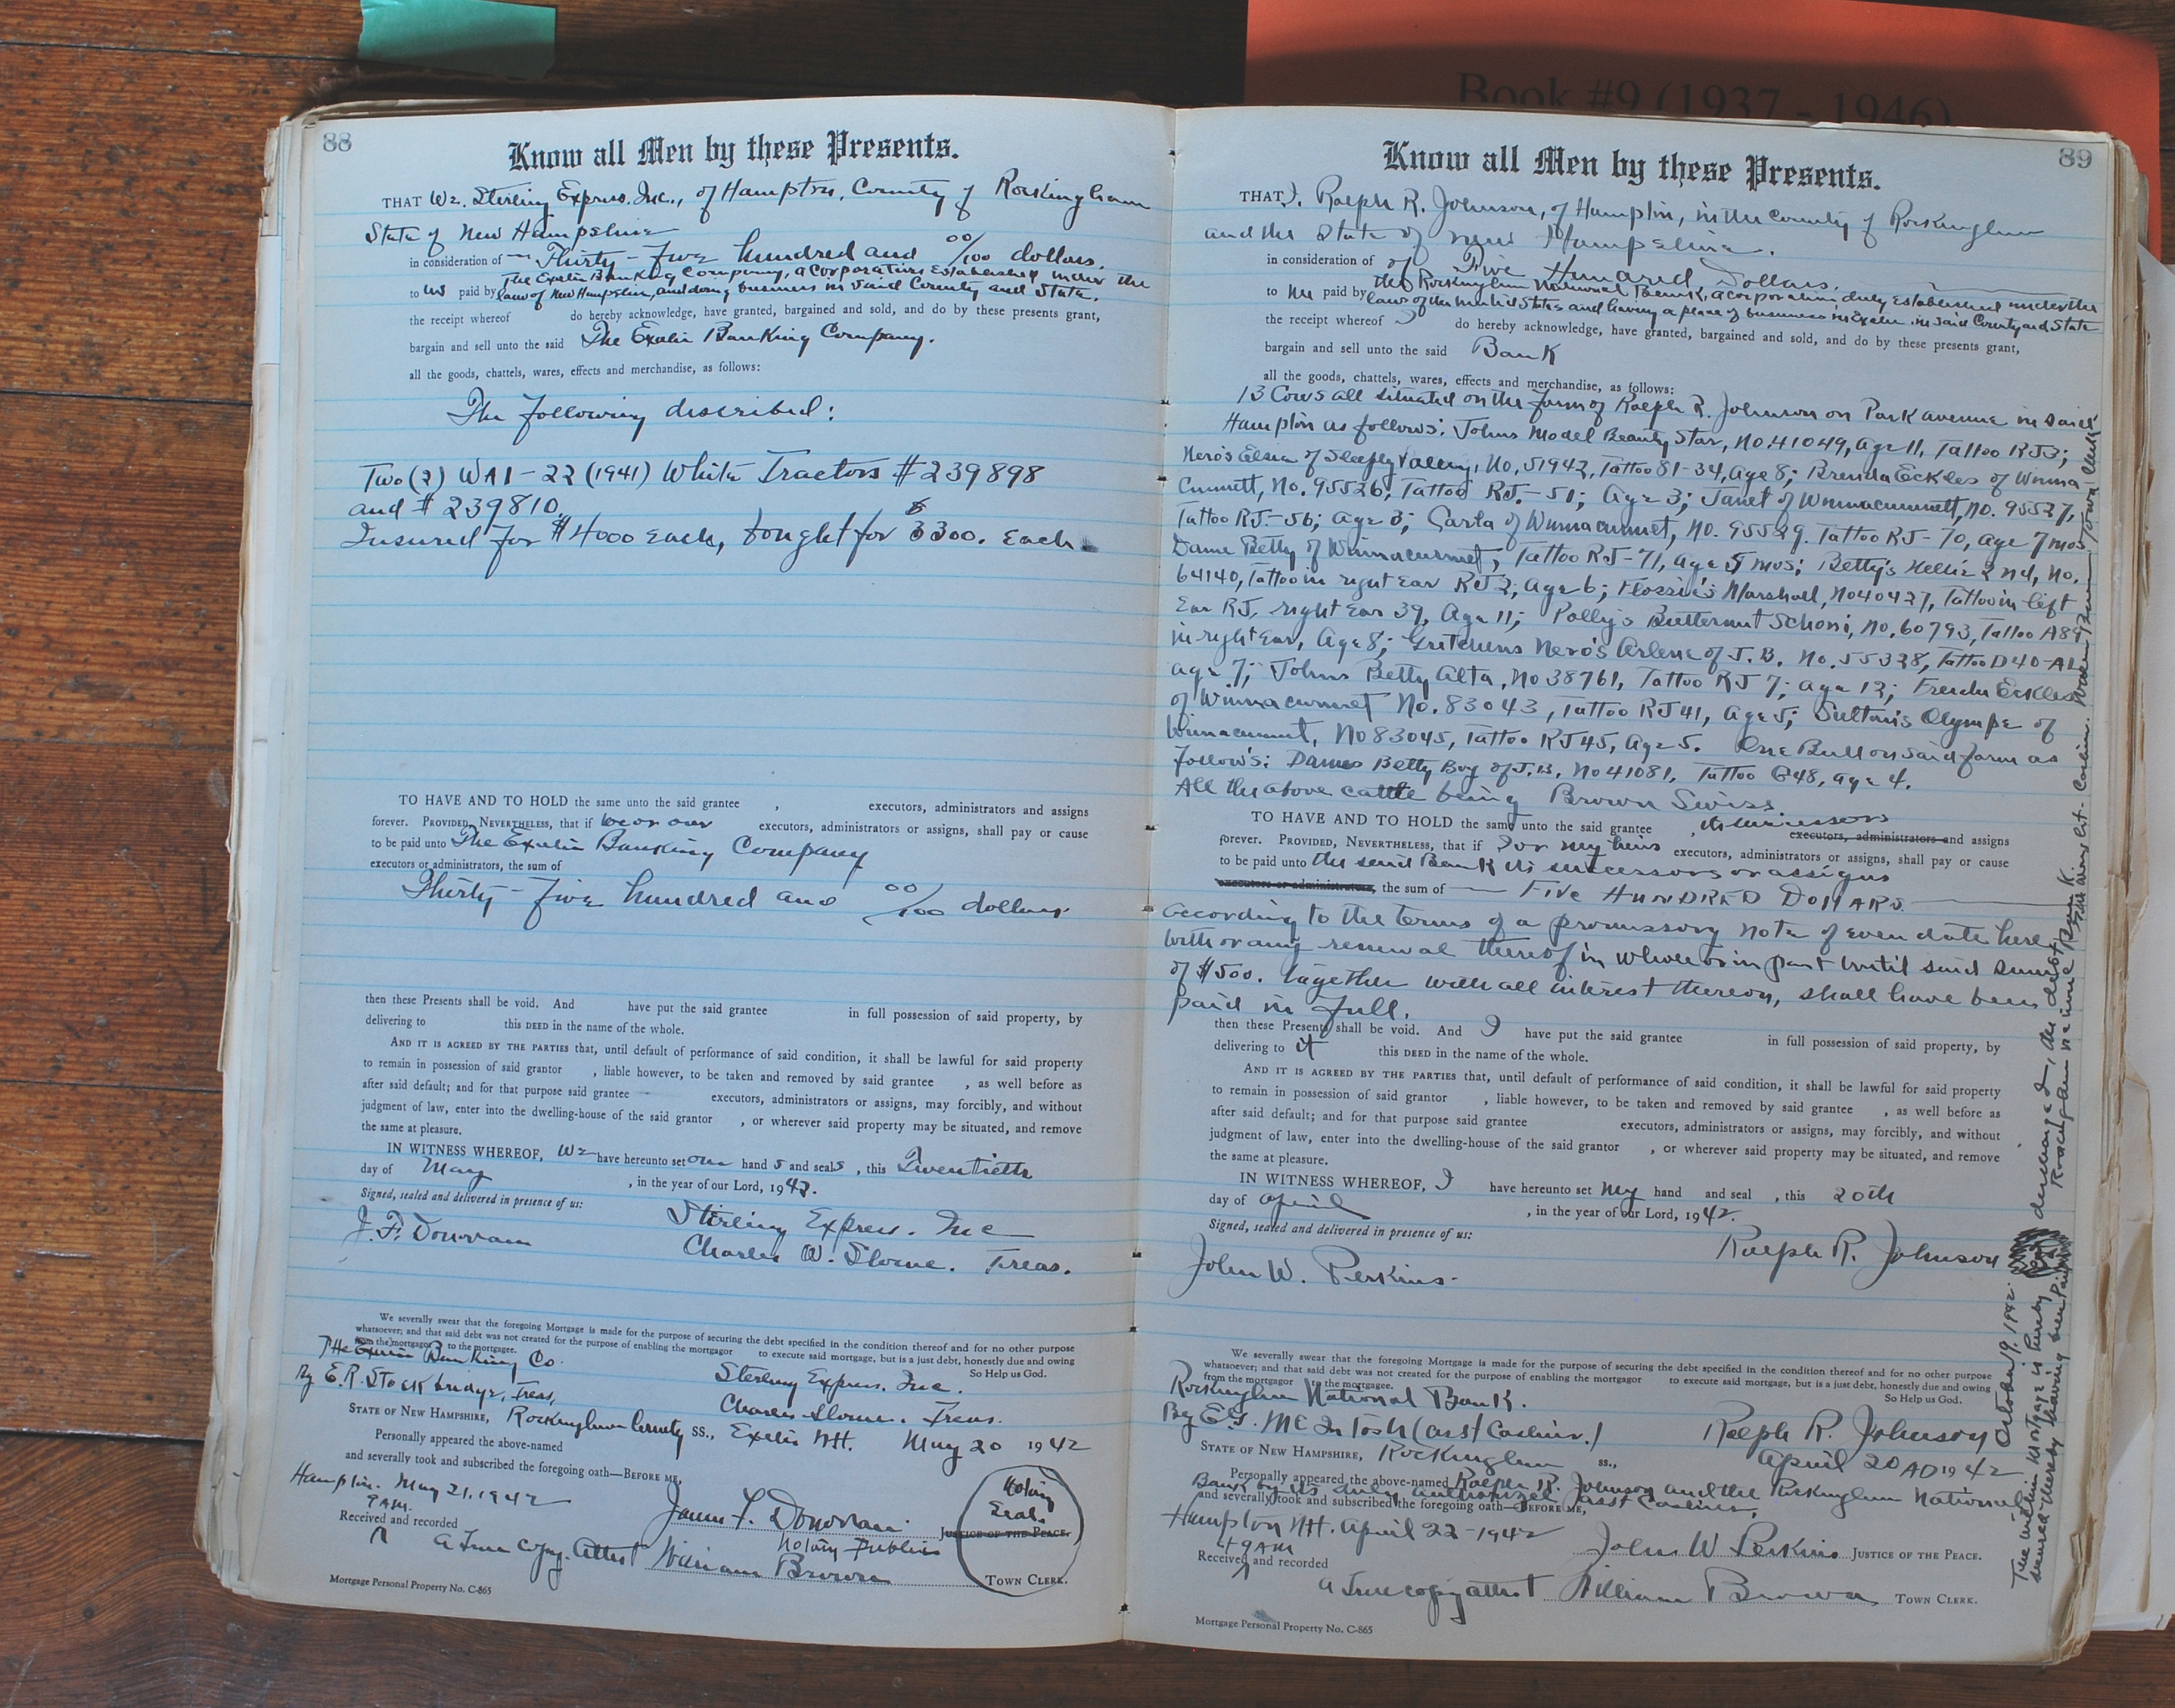 Book #9 (1937 - 1946)
88
Know all Men by these Presents.
THAT We, Sterling Express, Inc., of Hampton, County of Rockingham
State of New Hampshire
in consideration of Thirty-five hundred and 00/100 dollars.
to us paid by The Exeter Banking Company, a corporation established under the
laws of New Hampshire, and doing business in said County and State,
the receipt whereof do hereby acknowledge, have granted, bargained and sold, and do by these presents grant,
bargain and sell unto the said The Exeter Banking Company.
all the goods, chattels, wares, effects and merchandise, as follows:
The following described:
Two (2) WA1-22 (1941) White Tractors #239898
and #239810.
Insured for $4000 each, bought for $3300. each.
TO HAVE AND TO HOLD the same unto the said grantee , executors, administrators and assigns
forever. PROVIDED, NEVERTHELESS, that if we or our executors, administrators or assigns, shall pay or cause
to be paid unto The Exeter Banking Company
executors or administrators, the sum of
Thirty-five hundred and 00/100 dollars
then these Presents shall be void. And have put the said grantee in full possession of said property, by
delivering to this DEED in the name of the whole.
AND IT IS AGREED BY THE PARTIES that, until default of performance of said condition, it shall be lawful for said property
to remain in possession of said grantor , liable however, to be taken and removed by said grantee , as well before as
after said default; and for that purpose said grantee executors, administrators or assigns, may forcibly, and without
judgment of law, enter into the dwelling-house of the said grantor , or wherever said property may be situated, and remove
the same at pleasure.
IN WITNESS WHEREOF, We have hereunto set our hand s and seal s , this Twentieth
day of May , in the year of our Lord, 1942.
Signed, sealed and delivered in presence of us:
Sterling Express. Inc
J. F. Donovan
Charles W. Sloane. Treas.
We severally swear that the foregoing Mortgage is made for the purpose of securing the debt specified in the condition thereof and for no other purpose
whatsoever; and that said debt was not created for the purpose of enabling the mortgagor to execute said mortgage, but is a just debt, honestly due and owing
from the mortgagor to the mortgagee. So Help us God.
The Exeter Banking Co.
By E.R. Stockbridge, Treas,
Sterling Express. Inc.
Charles Sloane. Treas.
STATE OF NEW HAMPSHIRE, Rockingham County ss., Exeter N.H. May 20 1942
Personally appeared the above-named
and severally took and subscribed the foregoing oath—BEFORE ME,
Hampton. May 21, 1942
9 AM.
Received and recorded
James F. Donovan JUSTICE OF THE PEACE.
Notary Public
Notary Seal.
A True copy. Attest William Brown TOWN CLERK.
Mortgage Personal Property No. C-865
89
Know all Men by these Presents.
THAT I, Ralph R. Johnson, of Hampton, in the County of Rockingham
and the State of New Hampshire.
in consideration of of Five Hundred Dollars.
to me paid by the Rockingham National Bank, a corporation duly established under the
laws of the United States and having a place of business in Exeter in said County and State
the receipt whereof I do hereby acknowledge, have granted, bargained and sold, and do by these presents grant,
bargain and sell unto the said Bank
all the goods, chattels, wares, effects and merchandise, as follows:
13 Cows all situated on the farm of Ralph R. Johnson on Park avenue in said
Hampton as follows: Johns Model Beauty Star, No. 41049, age 11, Tattoo RJ3;
Nero's Elsia of Sleepy Valley, No. 51942, Tattoo 81-34, age 8; Brenda Eckles of Winna
cunnett, No. 95526, Tattoo RJ-51; Age 3; Janet of Winnacunnett, No. 95527,
Tattoo RJ-56; age 3; Carla of Winnacunnet, No. 95529. Tattoo RJ-70, age 7 mos
Dame Betty of Winnacunnet, Tattoo RJ-71, age 5 mos; Betty's Nellie 2nd, No.
64140, Tattoo in right ear RJ2, age 6; Flossie's Marshall, No 40427, Tattoo in left
Ear RJ, right ear 39, Age 11; Polly's Butternut Schoni, No. 60793, Tattoo A89
in right ear, Age 8; Gretchens Nero's Arlene of J.B. No. 55328, Tattoo D40-AL
age 7; Johns Betty Alta, No 38761, Tattoo RJ 7; age 12; Freida Eckles
of Winnacunnet No. 83043, Tattoo RJ41, Age 5; Sultan's Olympe of
Winnacunnet, No 83045, Tattoo RJ45, Age 5. One Bull on said farm as
follows: Dames Betty Boy of J.B. No 41081, Tattoo C48, age 4.
All the above cattle being Brown Swiss.
TO HAVE AND TO HOLD the same unto the said grantee , its successors executors, administrators and assigns
forever. PROVIDED, NEVERTHELESS, that if I or my heirs executors, administrators or assigns, shall pay or cause
to be paid unto the said Bank its successors or assigns
executors or administrators, the sum of — FIVE HUNDRED DOLLARS
according to the terms of a promissory note of even date here
with or any renewal thereof in whole or in part until said sum
of $500. together with all interest thereon, shall have been
paid in full.
then these Presents shall be void. And I have put the said grantee in full possession of said property, by
delivering to it this DEED in the name of the whole.
AND IT IS AGREED BY THE PARTIES that, until default of performance of said condition, it shall be lawful for said property
to remain in possession of said grantor , liable however, to be taken and removed by said grantee , as well before as
after said default; and for that purpose said grantee executors, administrators or assigns, may forcibly, and without
judgment of law, enter into the dwelling-house of the said grantor , or wherever said property may be situated, and remove
the same at pleasure.
IN WITNESS WHEREOF, I have hereunto set my hand and seal , this 20th
day of April , in the year of our Lord, 1942.
Signed, sealed and delivered in presence of us:
Ralph R. Johnson
John W. Perkins.
We severally swear that the foregoing Mortgage is made for the purpose of securing the debt specified in the condition thereof and for no other purpose
whatsoever; and that said debt was not created for the purpose of enabling the mortgagor to execute said mortgage, but is a just debt, honestly due and owing
from the mortgagor to the mortgagee. So Help us God.
Rockingham National Bank.
By E.G. McIntosh (asst Cashier.)
Ralph R. Johnson
STATE OF NEW HAMPSHIRE, Rockingham ss., April 20 AD 1942
Personally appeared the above-named Ralph R. Johnson and the Rockingham National
Bank by its duly authorized Asst Cashier,
and severally took and subscribed the foregoing oath—BEFORE ME,
Hampton NH. April 22-1942
9 AM
Received and recorded
John W Perkins JUSTICE OF THE PEACE.
A True copy attest William Brown TOWN CLERK.
Mortgage Personal Property No. C-865
October 19, 1942.
The within Mortgage is hereby discharged, the debt
secured thereby having been paid. Rockingham National Bank.
Cashier. William Brown Town Clerk